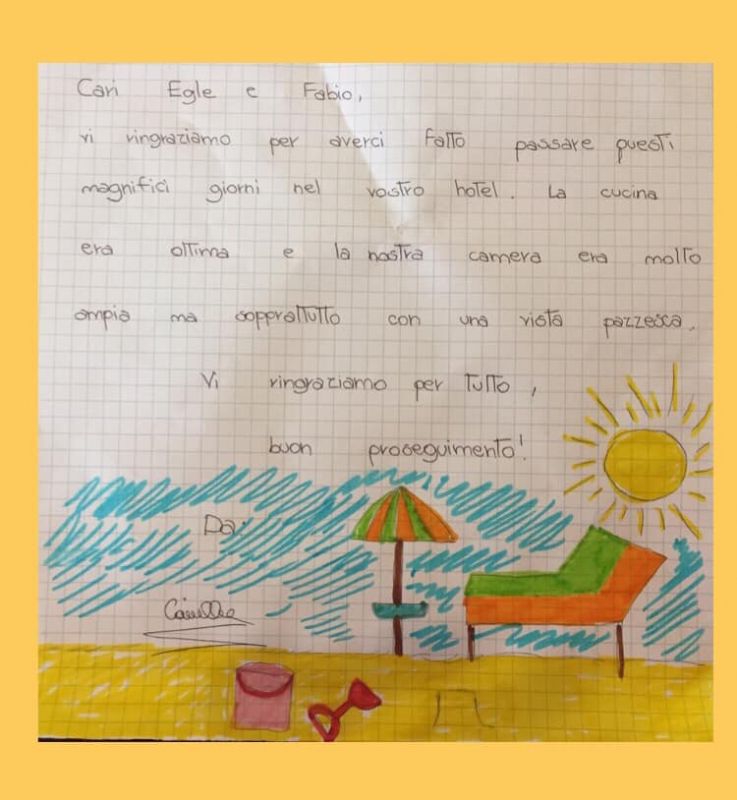 Cari Egle e Fabio,
vi ringraziamo per averci fatto passare questi
magnifici giorni nel vostro hotel. La cucina
era ottima e la nostra camera era molto
ampia ma soprattutto con una vista pazzesca.
Vi ringraziamo per tutto,
buon proseguimento!
Da: